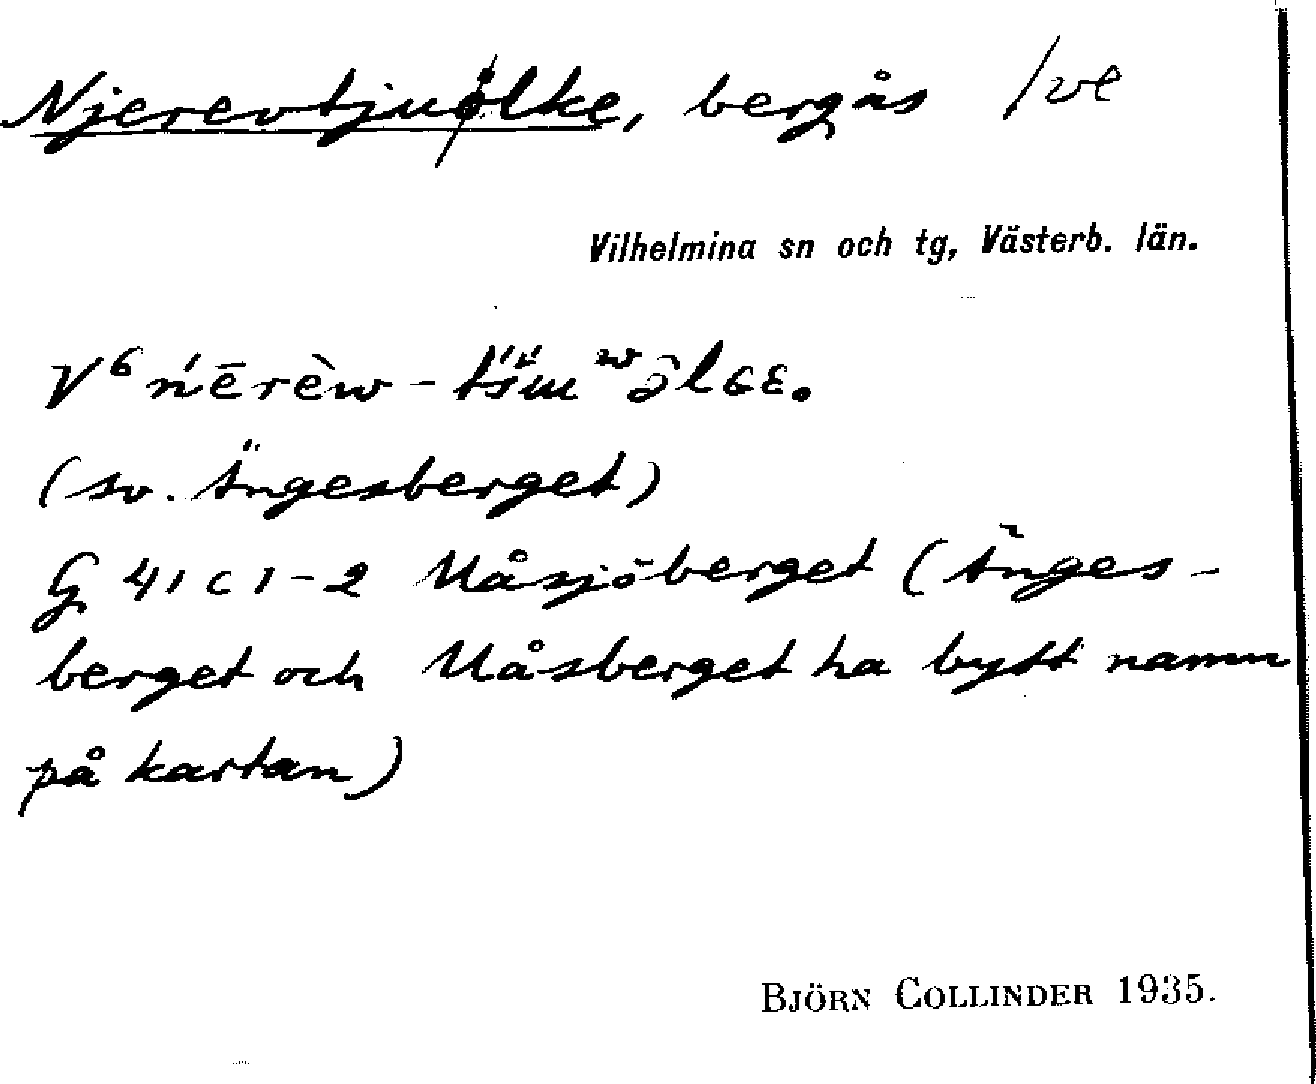 Njerevtjuolke, bergås /ve
Vilhelmina sn och tg, Västerb. län.
V⁶ ńērèw-
(sv. Ängesberget)
G 41 c 1-2 Måsjöberget (Änges-
berget och Måsberget ha bytt namn
på kartan)
BJÖRN COLLINDER 1935.